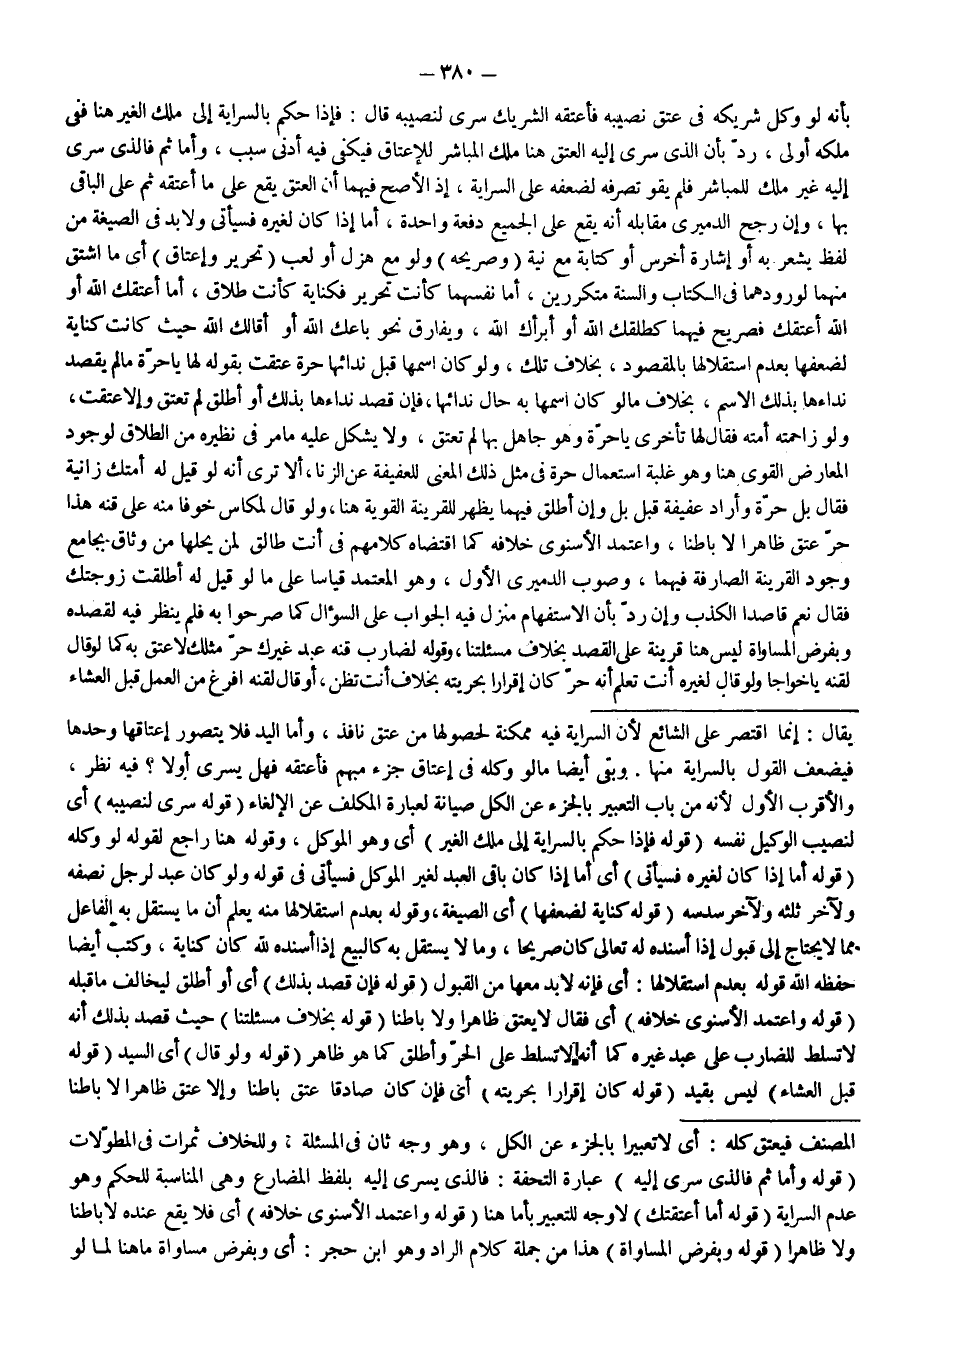 — ٣٨٠ —
بأنه لو وكل شريكه فى عتق نصيبه فأعتقه الشريك سرى لنصيبه قال : فإذا حكم بالسراية إلى ملك الغير هنا ففى
ملكه أولى ، ردّ بأن الذى سرى إليه العتق هنا ملك المباشر للإعتاق فيكفى فيه أدنى سبب ، وأما ثم فالذى سرى
إليه غير ملك للمباشر فلم يقو تصرفه لضعفه على السراية ، إذ الأصح فيهما أن العتق يقع على ما أعتقه ثم على الباقى
بها ، وإن رجح الدميرى مقابله أنه يقع على الجميع دفعة واحدة ، أما إذا كان لغيره فسيأتى ولابد فى الصيغة من
لفظ يشعر به أو إشارة أخرس أو كتابة مع نية ( وصريحه ) ولو مع هزل أو لعب ( تحرير وإعتاق ) أى ما اشتق
منهما لورودهما فى الكتاب والسنة متكررين ، أما نفسهما كأنت تحرير فكناية كأنت طلاق ، أما أعتقك الله أو
الله أعتقك فصريح فيهما كطلقك الله أو أبرأك الله ، ويفارق نحو باعك الله أو أقالك الله حيث كانت كناية
لضعفها بعدم استقلالها بالمقصود ، بخلاف تلك ، ولو كان اسمها قبل ندائها حرة عتقت بقوله لها ياحرّة مالم يقصد
نداءها بذلك الاسم ، بخلاف مالو كان اسمها به حال ندائها ، فإن قصد نداءها بذلك أو أطلق لم تعتق وإلا عتقت ،
ولو زاحمته أمته فقال لها تأخرى ياحرّة وهو جاهل بها لم تعتق ، ولا يشكل عليه مامر فى نظيره من الطلاق لوجود
المعارض القوى هنا وهو غلبة استعمال حرة فى مثل ذلك المعنى للعفيفة عن الزنا ، ألا ترى أنه لو قيل له أمتك زانية
فقال بل حرّة وأراد عفيفة قبل بل وإن أطلق فيهما يظهر للقرينة القوية هنا ، ولو قال لمكاس خوفا منه على قنه هذا
حرّ عتق ظاهرا لا باطنا ، واعتمد الأسنوى خلافه كما اقتضاه كلامهم فى أنت طالق لمن يحلها من وثاق بجامع
وجود القرينة الصارفة فيهما ، وصوب الدميرى الأول ، وهو المعتمد قياسا على ما لو قيل له أطلقت زوجتك
فقال نعم قاصدا الكذب وإن ردّ بأن الاستفهام منزل فيه الجواب على السؤال كما صرحوا به فلم ينظر فيه لقصده
وبفرض المساواة ليس هنا قرينة على القصد بخلاف مسئلتنا ، وقوله لضارب قنه عبد غيرك حرّ مثلك لاعتق به كما لوقال
لقنه ياخواجا ولو قال لغيره أنت تعلم أنه حرّ كان إقرارا بحريته بخلاف أنت تظن ، أو قال لقنه افرغ من العمل قبل العشاء
يقال : إنما اقتصر على الشائع لأن السراية فيه ممكنة لحصولها من عتق نافذ ، وأما اليد فلا يتصور إعتاقها وحدها
فيضعف القول بالسراية منها . وبقى أيضا مالو وكله فى إعتاق جزء مبهم فأعتقه فهل يسرى أولا ؟ فيه نظر ،
والأقرب الأول لأنه من باب التعبير بالجزء عن الكل صيانة لعبارة المكلف عن الإلغاء ( قوله سرى لنصيبه ) أى
لنصيب الوكيل نفسه ( قوله فإذا حكم بالسراية إلى ملك الغير ) أى وهو الموكل ، وقوله هنا راجع لقوله لو وكله
( قوله أما إذا كان لغيره فسيأتى ) أى أما إذا كان باقى العبد لغير الموكل فسيأتى فى قوله ولو كان عبد لرجل نصفه
ولآخر ثلثه ولآخر سدسه ( قوله كناية لضعفها ) أى الصيغة ، وقوله بعدم استقلالها منه يعلم أن ما يستقل به الفاعل
مما لا يحتاج إلى قبول إذا أسنده له تعالى كان صريحا ، وما لا يستقل به كالبيع إذا أسنده لله كان كناية ، وكتب أيضا
حفظه الله قوله بعدم استقلالها : أى فإنه لابد معها من القبول ( قوله فإن قصد بذلك ) أى أو أطلق ليخالف ماقبله
( قوله واعتمد الأسنوى خلافه ) أى فقال لا يعتق ظاهرا ولا باطنا ( قوله بخلاف مسئلتنا ) حيث قصد بذلك أنه
لا تسلط للضارب على عبد غيره كما أنه لا تسلط على الحرّ وأطلق كما هو ظاهر ( قوله ولو قال ) أى السيد ( قوله
قبل العشاء ) ليس بقيد ( قوله كان إقرارا بحريته ) أى فإن كان صادقا عتق باطنا وإلا عتق ظاهرا لا باطنا
المصنف فيعتق كله : أى لا تعبيرا بالجزء عن الكل ، وهو وجه ثان فى المسئلة ؛ وللخلاف ثمرات فى المطوّلات
( قوله وأما ثم فالذى سرى إليه ) عبارة التحفة : فالذى يسرى إليه بلفظ المضارع وهى المناسبة للحكم وهو
عدم السراية ( قوله أما أعتقتك ) لاوجه للتعبير بأما هنا ( قوله واعتمد الأسنوى خلافه ) أى فلا يقع عنده لا باطنا
ولا ظاهرا ( قوله وبفرض المساواة ) هذا من جملة كلام الراد وهو ابن حجر : أى وبفرض مساواة ماهنا لما لو